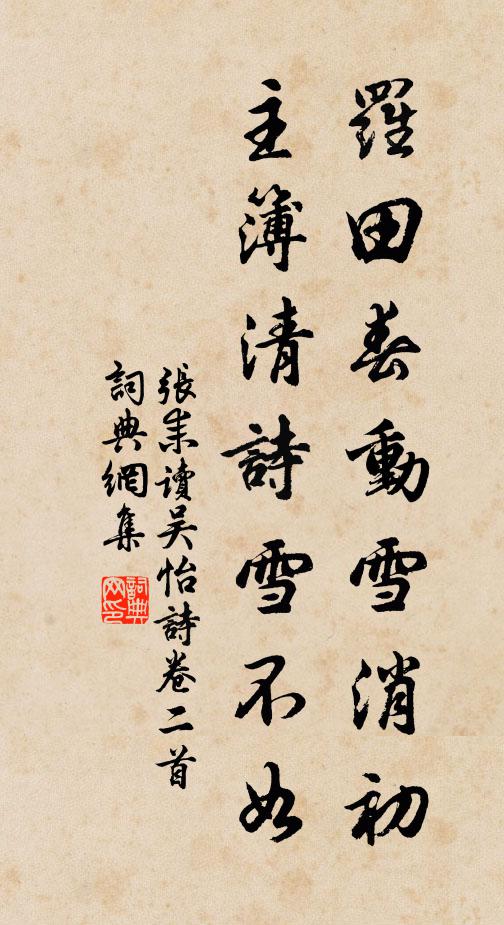 羅田春動雪消初
主簿清詩雪不如
張耒讀吴怡詩卷二首
詞典網集
詞典网印